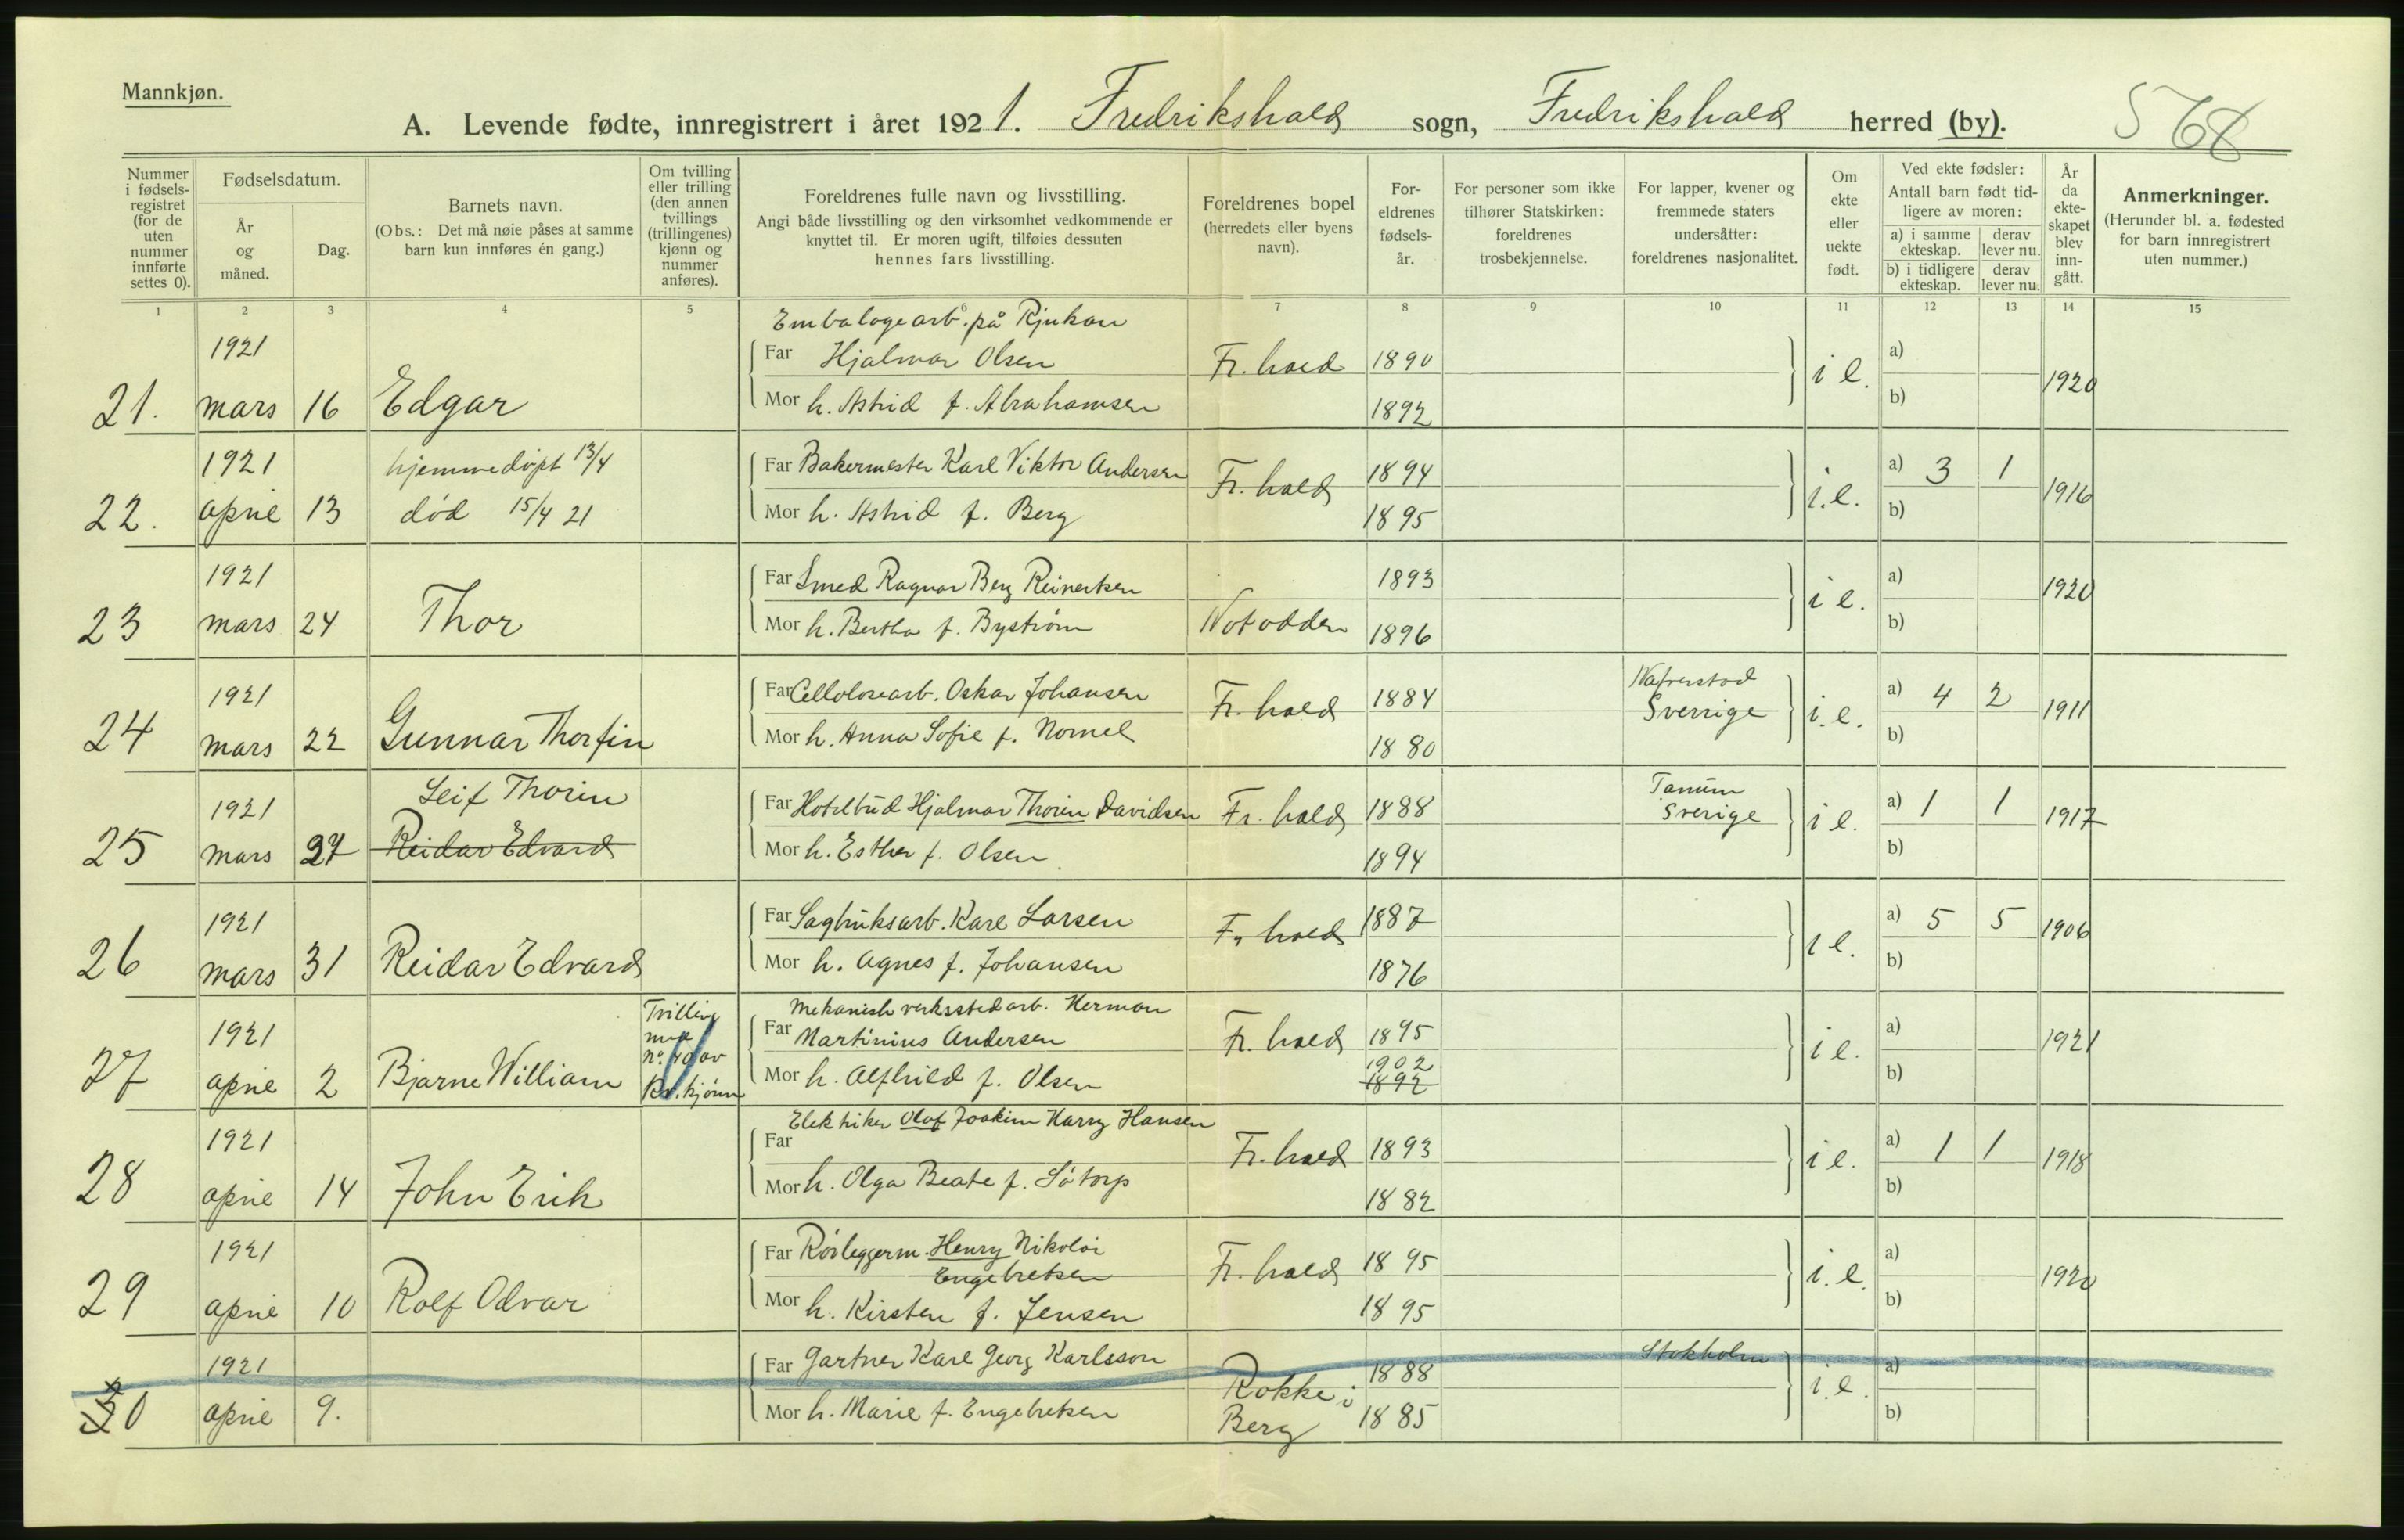 Mannkjøn.
A. Levende fødte, innregistrert i året 1921. Fredrikshald sogn, Fredrikshald herred (by). 568
Nummer i fødsels-registret (for de uten nummer innførte settes 0).
Fødselsdatum.
År og måned.
Dag.
Barnets navn.
(Obs.: Det må nøie påses at samme barn kun innføres én gang.)
Om tvilling eller trilling (den annen tvillings (trillingenes) kjønn og nummer anføres).
Foreldrenes fulle navn og livsstilling.
Angi både livsstilling og den virksomhet vedkommende er knyttet til. Er moren ugift, tilføies dessuten hennes fars livsstilling.
Foreldrenes bopel (herredets eller byens navn).
For-eldrenes fødsels-år.
For personer som ikke tilhører Statskirken: foreldrenes trosbekjennelse.
For lapper, kvener og fremmede staters undersåtter: foreldrenes nasjonalitet.
Om ekte eller uekte født.
Ved ekte fødsler:
Antall barn født tid-ligere av moren:
a) i samme ekteskap. derav lever nu.
b) i tidligere ekteskap. derav lever nu.
År da ekte-skapet blev inn-gått.
Anmerkninger.
(Herunder bl. a. fødested for barn innregistrert uten nummer.)
1 2 3 4 5 6 7 8 9 10 11 12 13 14 15
Embalagearb. på Rjukan
21. 1921 mars 16 Edgar Far Hjalmar Olsen Fr. hald 1890 i e. a) 1920
Mor h. Astrid f. Abrahamsen 1892 b)
22. 1921 april 13 hjemmedøpt 13/4 Far Bakermester Karl Viktor Andersen Fr. hald 1894 i. e. a) 3 1 1916
død 15/4 21 Mor h. Astrid f. Berg 1895 b)
23 1921 mars 24 Thor Far Smed Ragnar Berg Reinertsen Notodden 1893 i e. a) 1920
Mor h. Bertha f. Byström 1896 b)
24 1921 mars 22 Gunnar Thorfin Far Cellolosearb. Oskar Johansen Fr. hald 1884 Sverrige i. e. a) 4 2 1911
Mor h. Anna Sofie f. Nornel 1880 b)
25 1921 mars 27 Leif Thorin Far Hotelbud Hjalmar Thorin Davidsen Fr. hald 1888 Tanum Sverige i e. a) 1 1 1917
Reidar Edvard Mor h. Esther f. Olsen 1894 b)
26 1921 mars 31 Reidar Edvard Far Sagbruksarb. Karl Larsen Fr. hald 1887 i e. a) 5 5 1906
Mor h. Agnes f. Johansen 1876 b)
Mekanisk verkstedarb. Herman
27 1921 april 2 Bjarne William Tvilling med no. 40 av kv. kjønn Far Martinius Andersen Fr. hald 1895 i e. a) 1921
Mor h. Alfhild f. Olsen 1902 1892 b)
Elektriker Olaf Joakim Harry Hansen
28 1921 april 14 John Erik Far Fr. hald 1893 i e. a) 1 1 1918
Mor h. Olga Beate f. Søtorp 1882 b)
29 1921 april 10 Rolf Odvar Far Rørleggerm. Henry Nikolai Engebretsen Fr. hald 1895 i. e. a) 1920
Mor h. Kirsten f. Jensen 1895 b)
30 1921 april 9. Far Gartner Karl Georg Karlsson Rokke i Berg 1888 Stokholm i. e. a)
Mor h. Marie f. Engebretsen 1885 b)